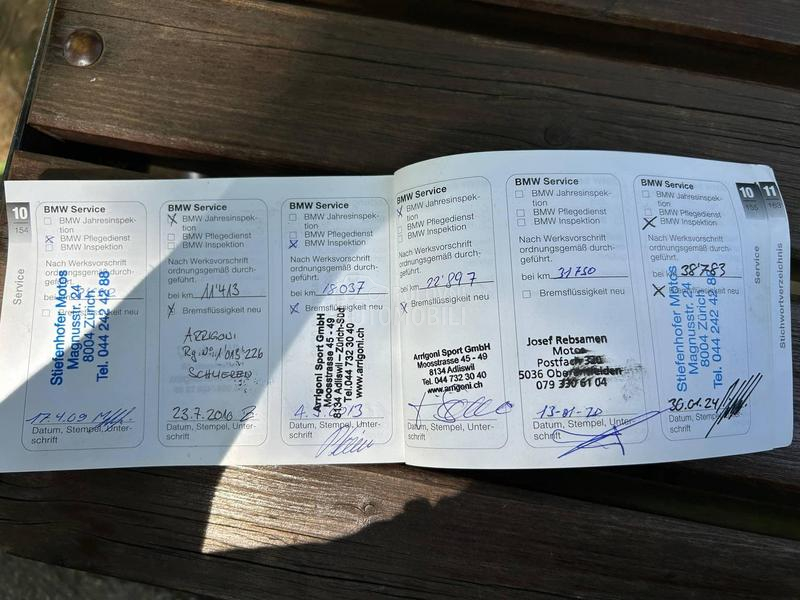 10
154
Service
BMW Service
BMW Jahresinspek-
tion
BMW Pflegedienst
BMW Inspektion
Nach Werksvorschrift
ordnungsgemäß durch-
geführt.
bei km
Stiefenhofer Motos
Magnusstr. 24
8004 Zürich
Tel. 044 242 42 88
17.4.09
Datum, Stempel, Unter-
schrift
BMW Service
BMW Jahresinspek-
tion
BMW Pflegedienst
BMW Inspektion
Nach Werksvorschrift
ordnungsgemäß durch-
geführt.
bei km 11'413
Bremsflüssigkeit neu
ARRIGONI
SCHLIEREN
23.7.2010
Datum, Stempel, Unter-
schrift
BMW Service
BMW Jahresinspek-
tion
BMW Pflegedienst
BMW Inspektion
Nach Werksvorschrift
ordnungsgemäß durch-
geführt.
bei km 18037
Bremsflüssigkeit neu
Arrigoni Sport GmbH
Moosstrasse 45 - 49
8134 Adliswil – Zürich-Süd
Tel. 044 732 30 40
www.arrigoni.ch
Datum, Stempel, Unter-
schrift
BMW Service
BMW Jahresinspek-
tion
BMW Pflegedienst
BMW Inspektion
Nach Werksvorschrift
ordnungsgemäß durch-
geführt.
bei km 22'897
Bremsflüssigkeit neu
Arrigoni Sport GmbH
Moosstrasse 45 - 49
8134 Adliswil
Tel. 044 732 30 40
www.arrigoni.ch
Datum, Stempel, Unter-
schrift
BMW Service
BMW Jahresinspek-
tion
BMW Pflegedienst
BMW Inspektion
Nach Werksvorschrift
ordnungsgemäß durch-
geführt.
bei km 31750
Bremsflüssigkeit neu
Josef Rebsamen
Motos
Postfach
5036
079 330 61 04
13-01-20
Datum, Stempel, Unter-
schrift
BMW Service
BMW Jahresinspek-
tion
BMW Pflegedienst
BMW Inspektion
Nach Werksvorschrift
ordnungsgemäß durch-
geführt.
bei km 38'783
Bremsflüssigkeit neu
Stiefenhofer Motos
Magnusstr. 24
8004 Zürich
Tel. 044 242 42 88
30.01.24
Datum, Stempel, Unter-
schrift
10
155
Service
11
163
Stichwortverzeichnis